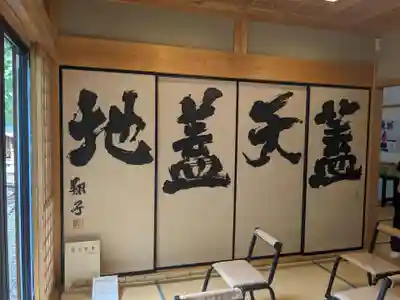 蓋天蓋地
翔子